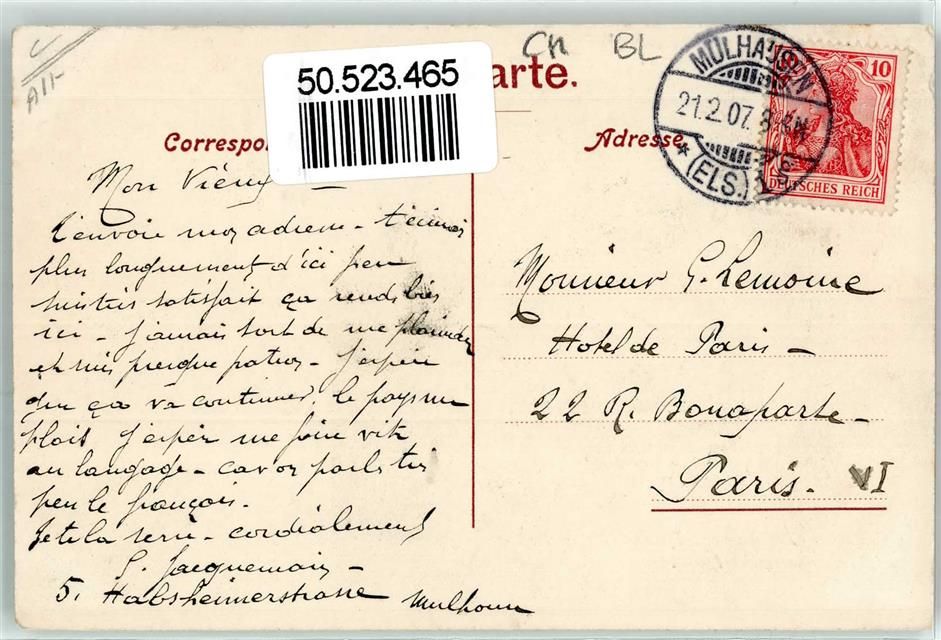 Ch BL
50.523.465
arte.
MÜLHAUSEN
21.2.07.
* (ELS.)
10
DEUTSCHES REICH
Correspon
Adresse
Mon Vieux
T'envoie mon adresse - t'écrirai
plus longuement d'ici peu
suis très satisfait ça rends bien
ici - j'aurais tort de me plaindre
et suis presque patron - j'espère
que ça va continuer, le pays me
plait j'espère me faire vite
au langage - car on parle très
peu le français.
Je te la serre - cordialement
Jacquemain -
5. Habsheimerstrasse Mulhouse
Monsieur G. Lemoine
Hotel de Paris -
22 R. Bonaparte -
Paris. VI